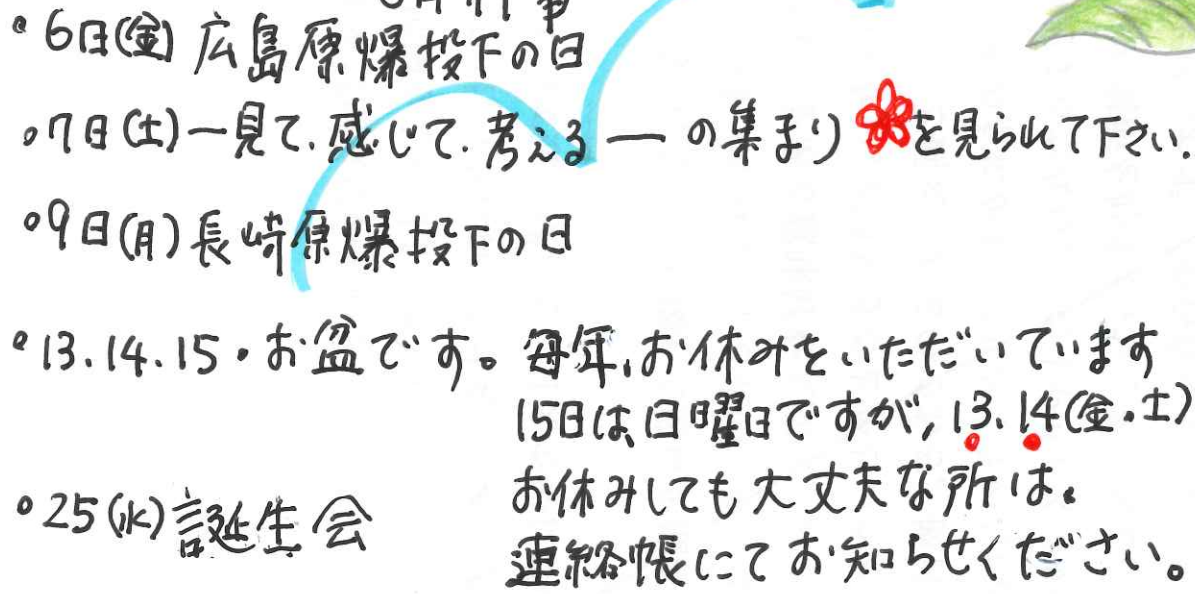 ・6日(金) 広島原爆投下の日
・7日(土)ー見て、感じて、考えるー の集まり を見られて下さい.
・9日(月) 長崎原爆投下の日
・13.14.15・お盆です。毎年、お休みをいただいています
15日は、日曜日ですが、13、14(金・土)
お休みしても大丈夫な所は、
連絡帳にてお知らせください。
・25(水)誕生会